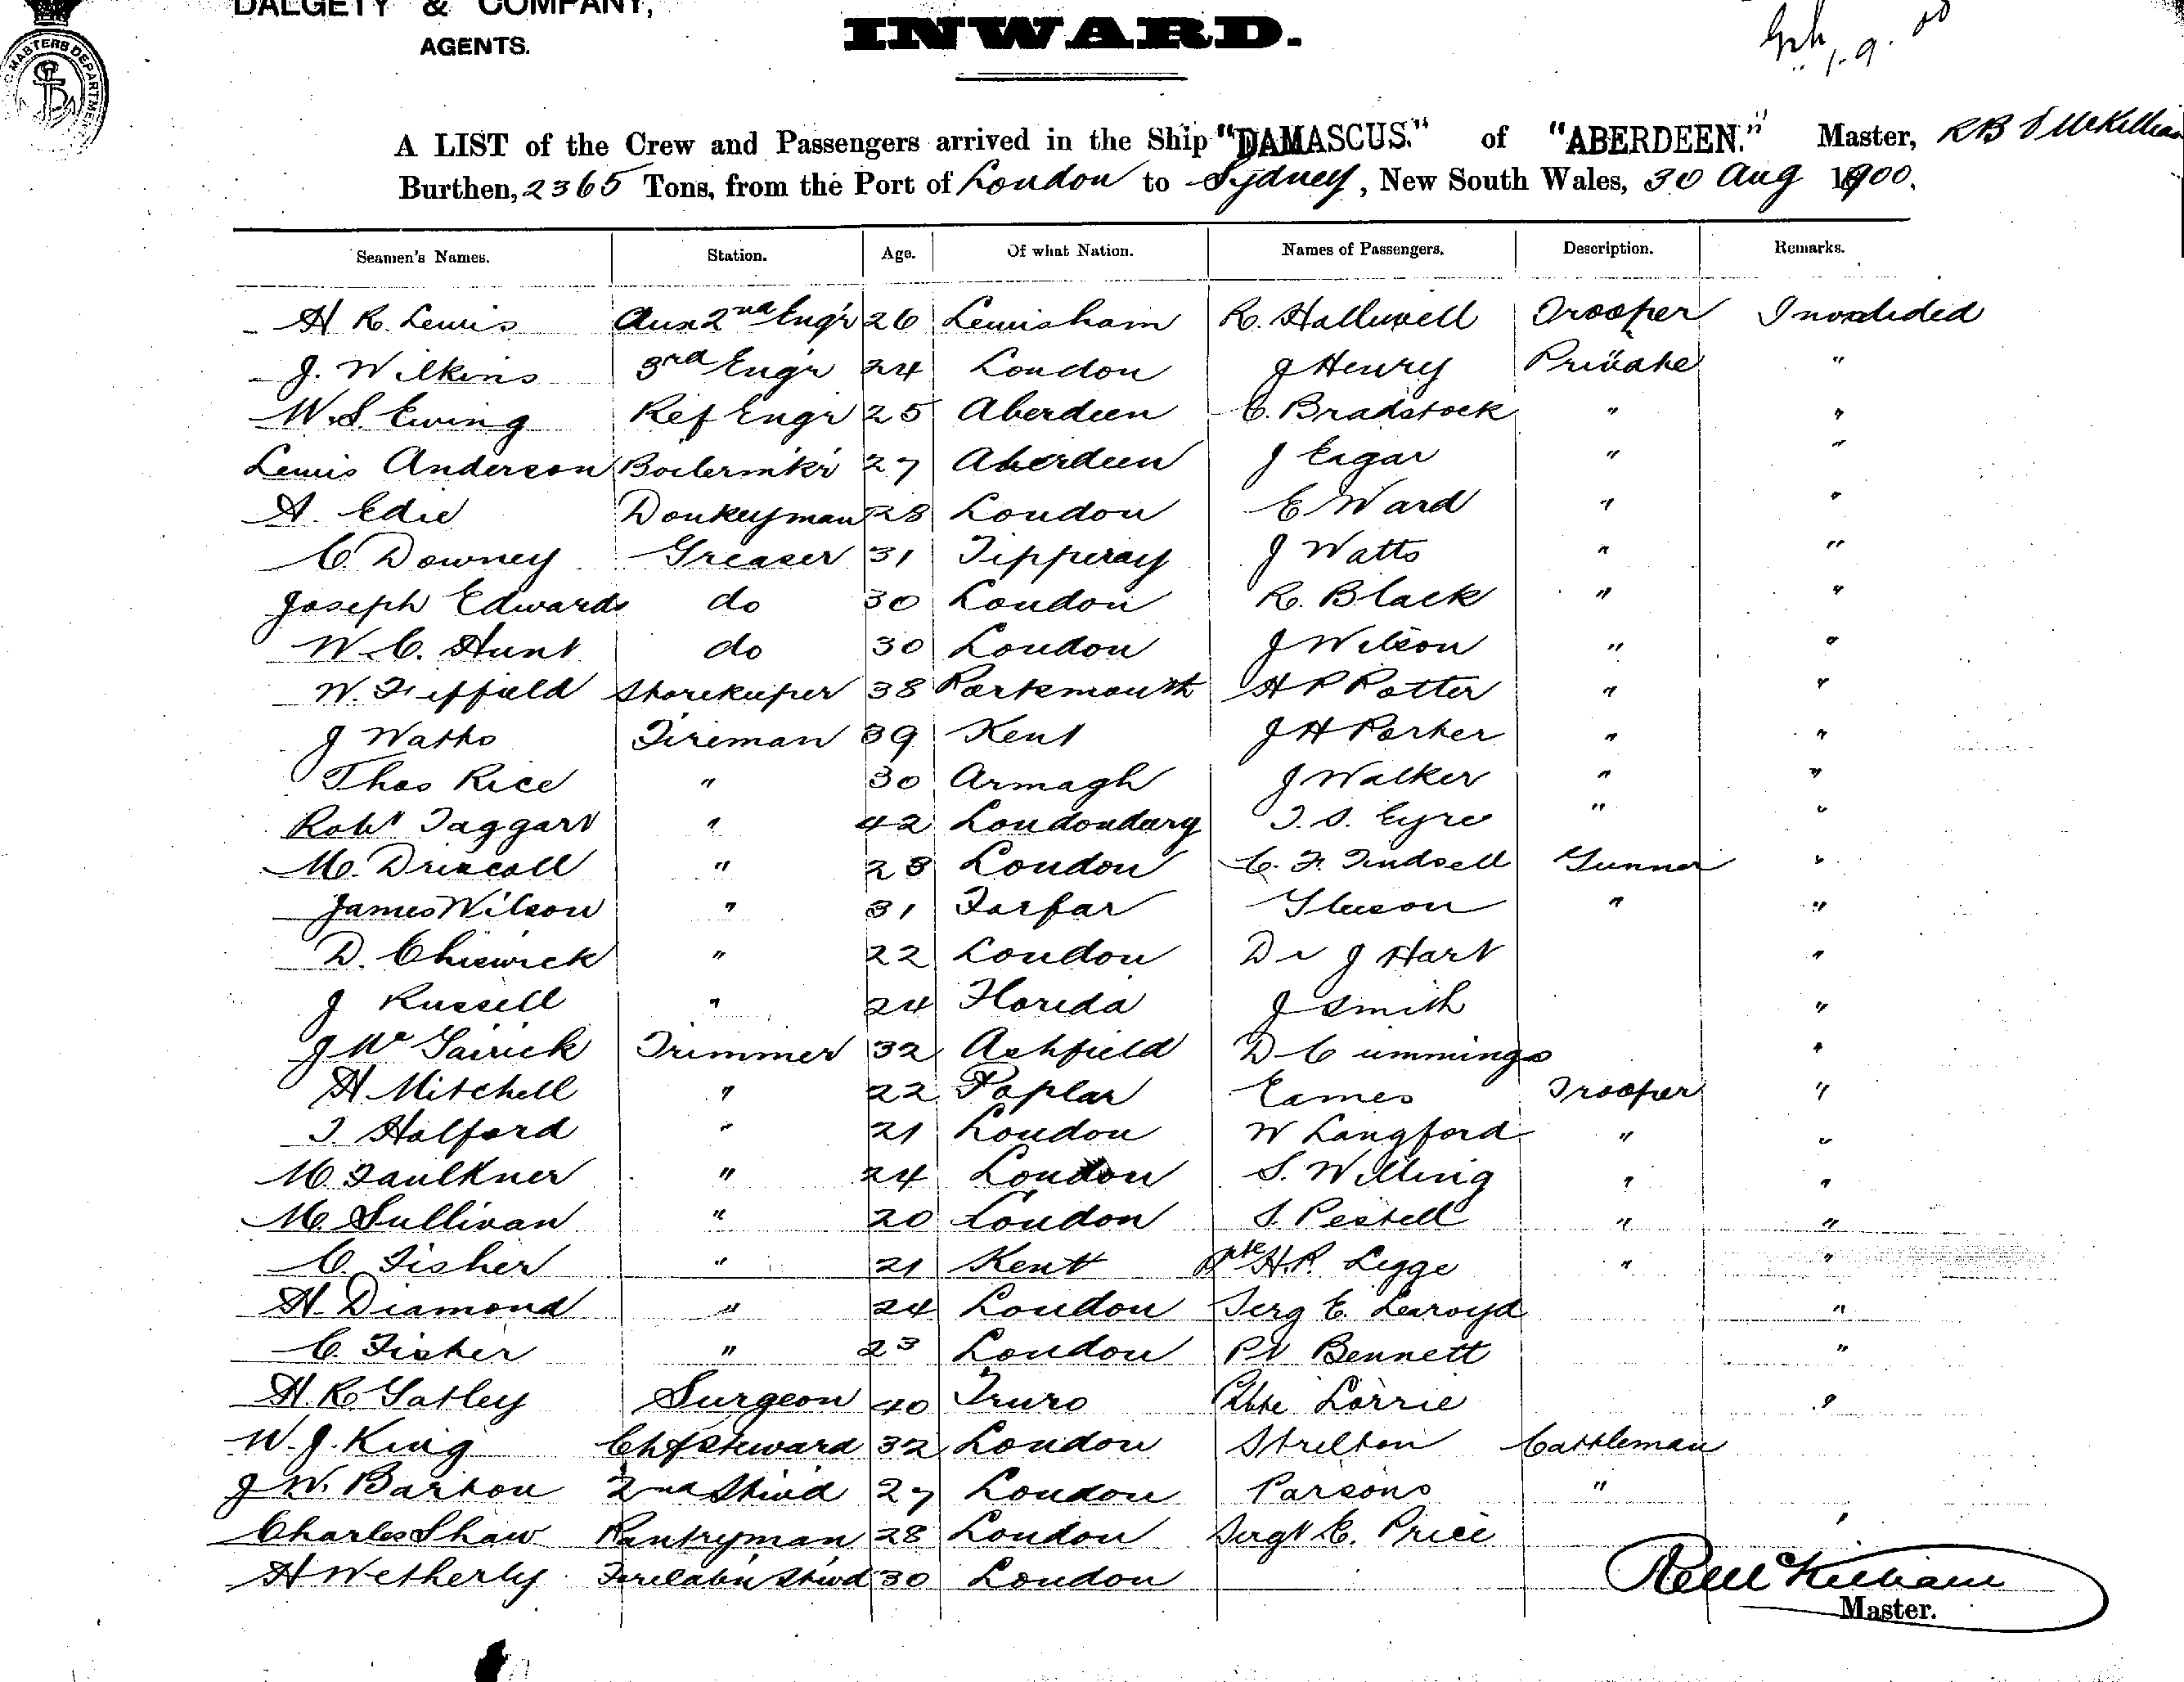 DALGETY & COMPANY,
AGENTS.
INWARD.
MASTERS DEPARTMENT
1.9.00
A LIST of the Crew and Passengers arrived in the Ship "DAMASCUS." of "ABERDEEN." Master,
Burthen, 2365 Tons, from the Port of London to Sydney, New South Wales, 30 Aug 1900.
Seamen's Names. Station. Age. Of what Nation. Names of Passengers. Description. Remarks.
H R. Lewis Aux 2nd Eng'r 26 Lewisham R. Halliwell Trooper Invalided
J. Wilkins 3rd Eng'r 24 London J Henry Private "
W. S Ewing Ref Engr 25 Aberdeen C. Bradstock " "
Lewis Anderson Boilermk'r 27 Aberdeen J Eagar " "
A. Edie Donkeyman 28 London E Ward " "
C Downey Greaser 31 Tipperay J Watts " "
Joseph Edwards do 30 London R. Black " "
W. C. Hunt do 30 London J Wilson " "
W. Fieffield Storekeeper 38 Portsmouth H P Potter " "
J Watts Fireman 39 Kent J H Porter " "
Thos Rice " 30 Armagh J Walker " "
Robt Taggart " 42 Londondery T. S. Eyre " "
M. Driscoll " 28 London C. F. Tindsell Gunner "
James Wilson " 31 Forfar Gleeson " "
D. Chiswick " 22 London Dr J Hart "
J Russell " 24 Florida J Smith "
J Mc Garrick Trimmer 32 Ashfield D Cummings "
H. Mitchell " 22 Poplar Eames Trooper "
T. Halford " 21 London W Langford " "
M. Faulkner " 24 London S. Willing " "
M. Sullivan " 20 London S. Pestell " "
C. Fisher " 21 Kent Pte H. P. Legge " "
H. Diamond " 24 London Serg E. Learoyd "
C. Fisher " 23 London Pt Bennett "
H. R. Gatley Surgeon 40 Truro Lorrie "
W. J. King Chf Steward 32 London Strelton Cattleman
J W. Barton 2nd Stwd 27 London Parsons "
Charles Shaw Pantryman 28 London Sergt E. Price "
H Wetherly Forecabin Stwd 30 London
Master.